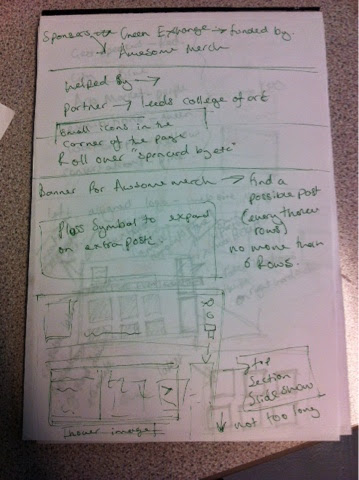 Sponsors → Green Exchange → funded by.
↓ Awesome Merch
Helped By →
Partner → Leeds college of art
Small icons in the
corner of the page
Roll over "sponcord by etc"
Banner for Awsome merch → find a
possible post
(every three
rows)
no more than
6 Rows.
Pluss Symbol to expand
on extra posts.
→ top
Section
Slide show
↓ not too long
hover image